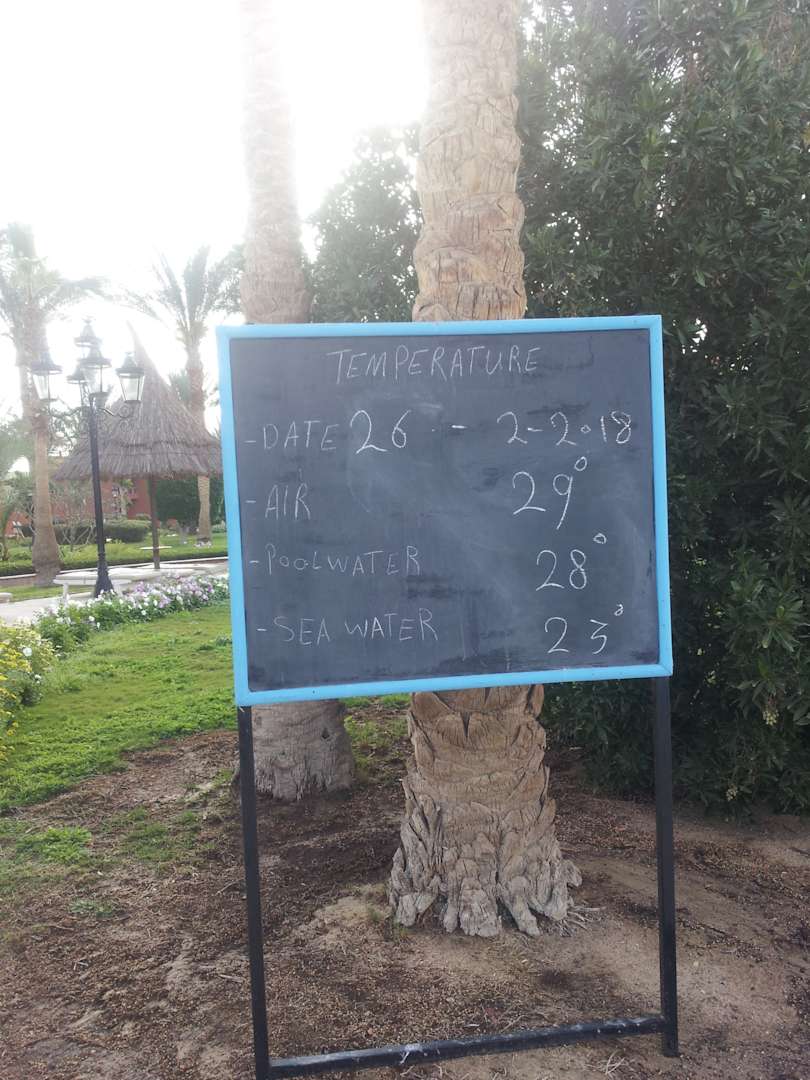 TEMPERATURE
- DATE 26 - 2-2018
- AIR 29°
- POOLWATER 28°
- SEA WATER 23°